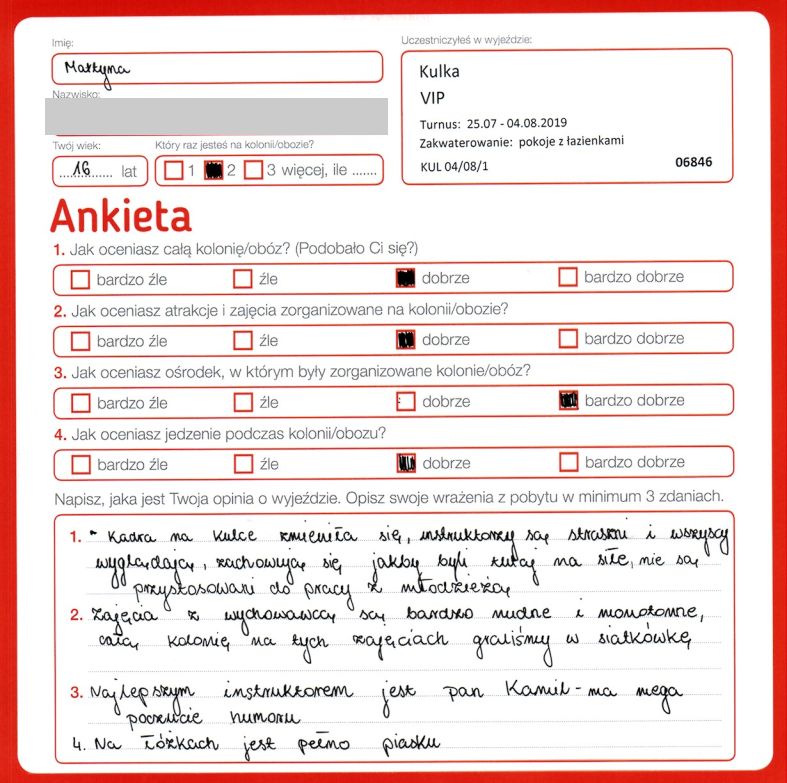 Imię:
Martyna
Nazwisko:
Twój wiek:
16 lat
Który raz jesteś na kolonii/obozie?
1 2 3 więcej, ile .......
Uczestniczyłeś w wyjeździe:
Kulka
VIP
Turnus: 25.07 - 04.08.2019
Zakwaterowanie: pokoje z łazienkami
KUL 04/08/1 06846
Ankieta
1. Jak oceniasz całą kolonię/obóz? (Podobało Ci się?)
bardzo źle źle dobrze bardzo dobrze
2. Jak oceniasz atrakcje i zajęcia zorganizowane na kolonii/obozie?
bardzo źle źle dobrze bardzo dobrze
3. Jak oceniasz ośrodek, w którym były zorganizowane kolonie/obóz?
bardzo źle źle dobrze bardzo dobrze
4. Jak oceniasz jedzenie podczas kolonii/obozu?
bardzo źle źle dobrze bardzo dobrze
Napisz, jaka jest Twoja opinia o wyjeździe. Opisz swoje wrażenia z pobytu w minimum 3 zdaniach.
1. Kadra na Kulce zmieniła się, instruktorzy są straszni i wszyscy
wyglądają, zachowują się jakby byli tutaj na siłę, nie są
przystosowani do pracy z młodzieżą
2. Zajęcia z wychowawcą są bardzo nudne i monotonne,
całą kolonię na tych zajęciach graliśmy w siatkówkę
3. Najlepszym instruktorem jest pan Kamil - ma mega
poczucie humoru
4. Na łóżkach jest pełno piasku